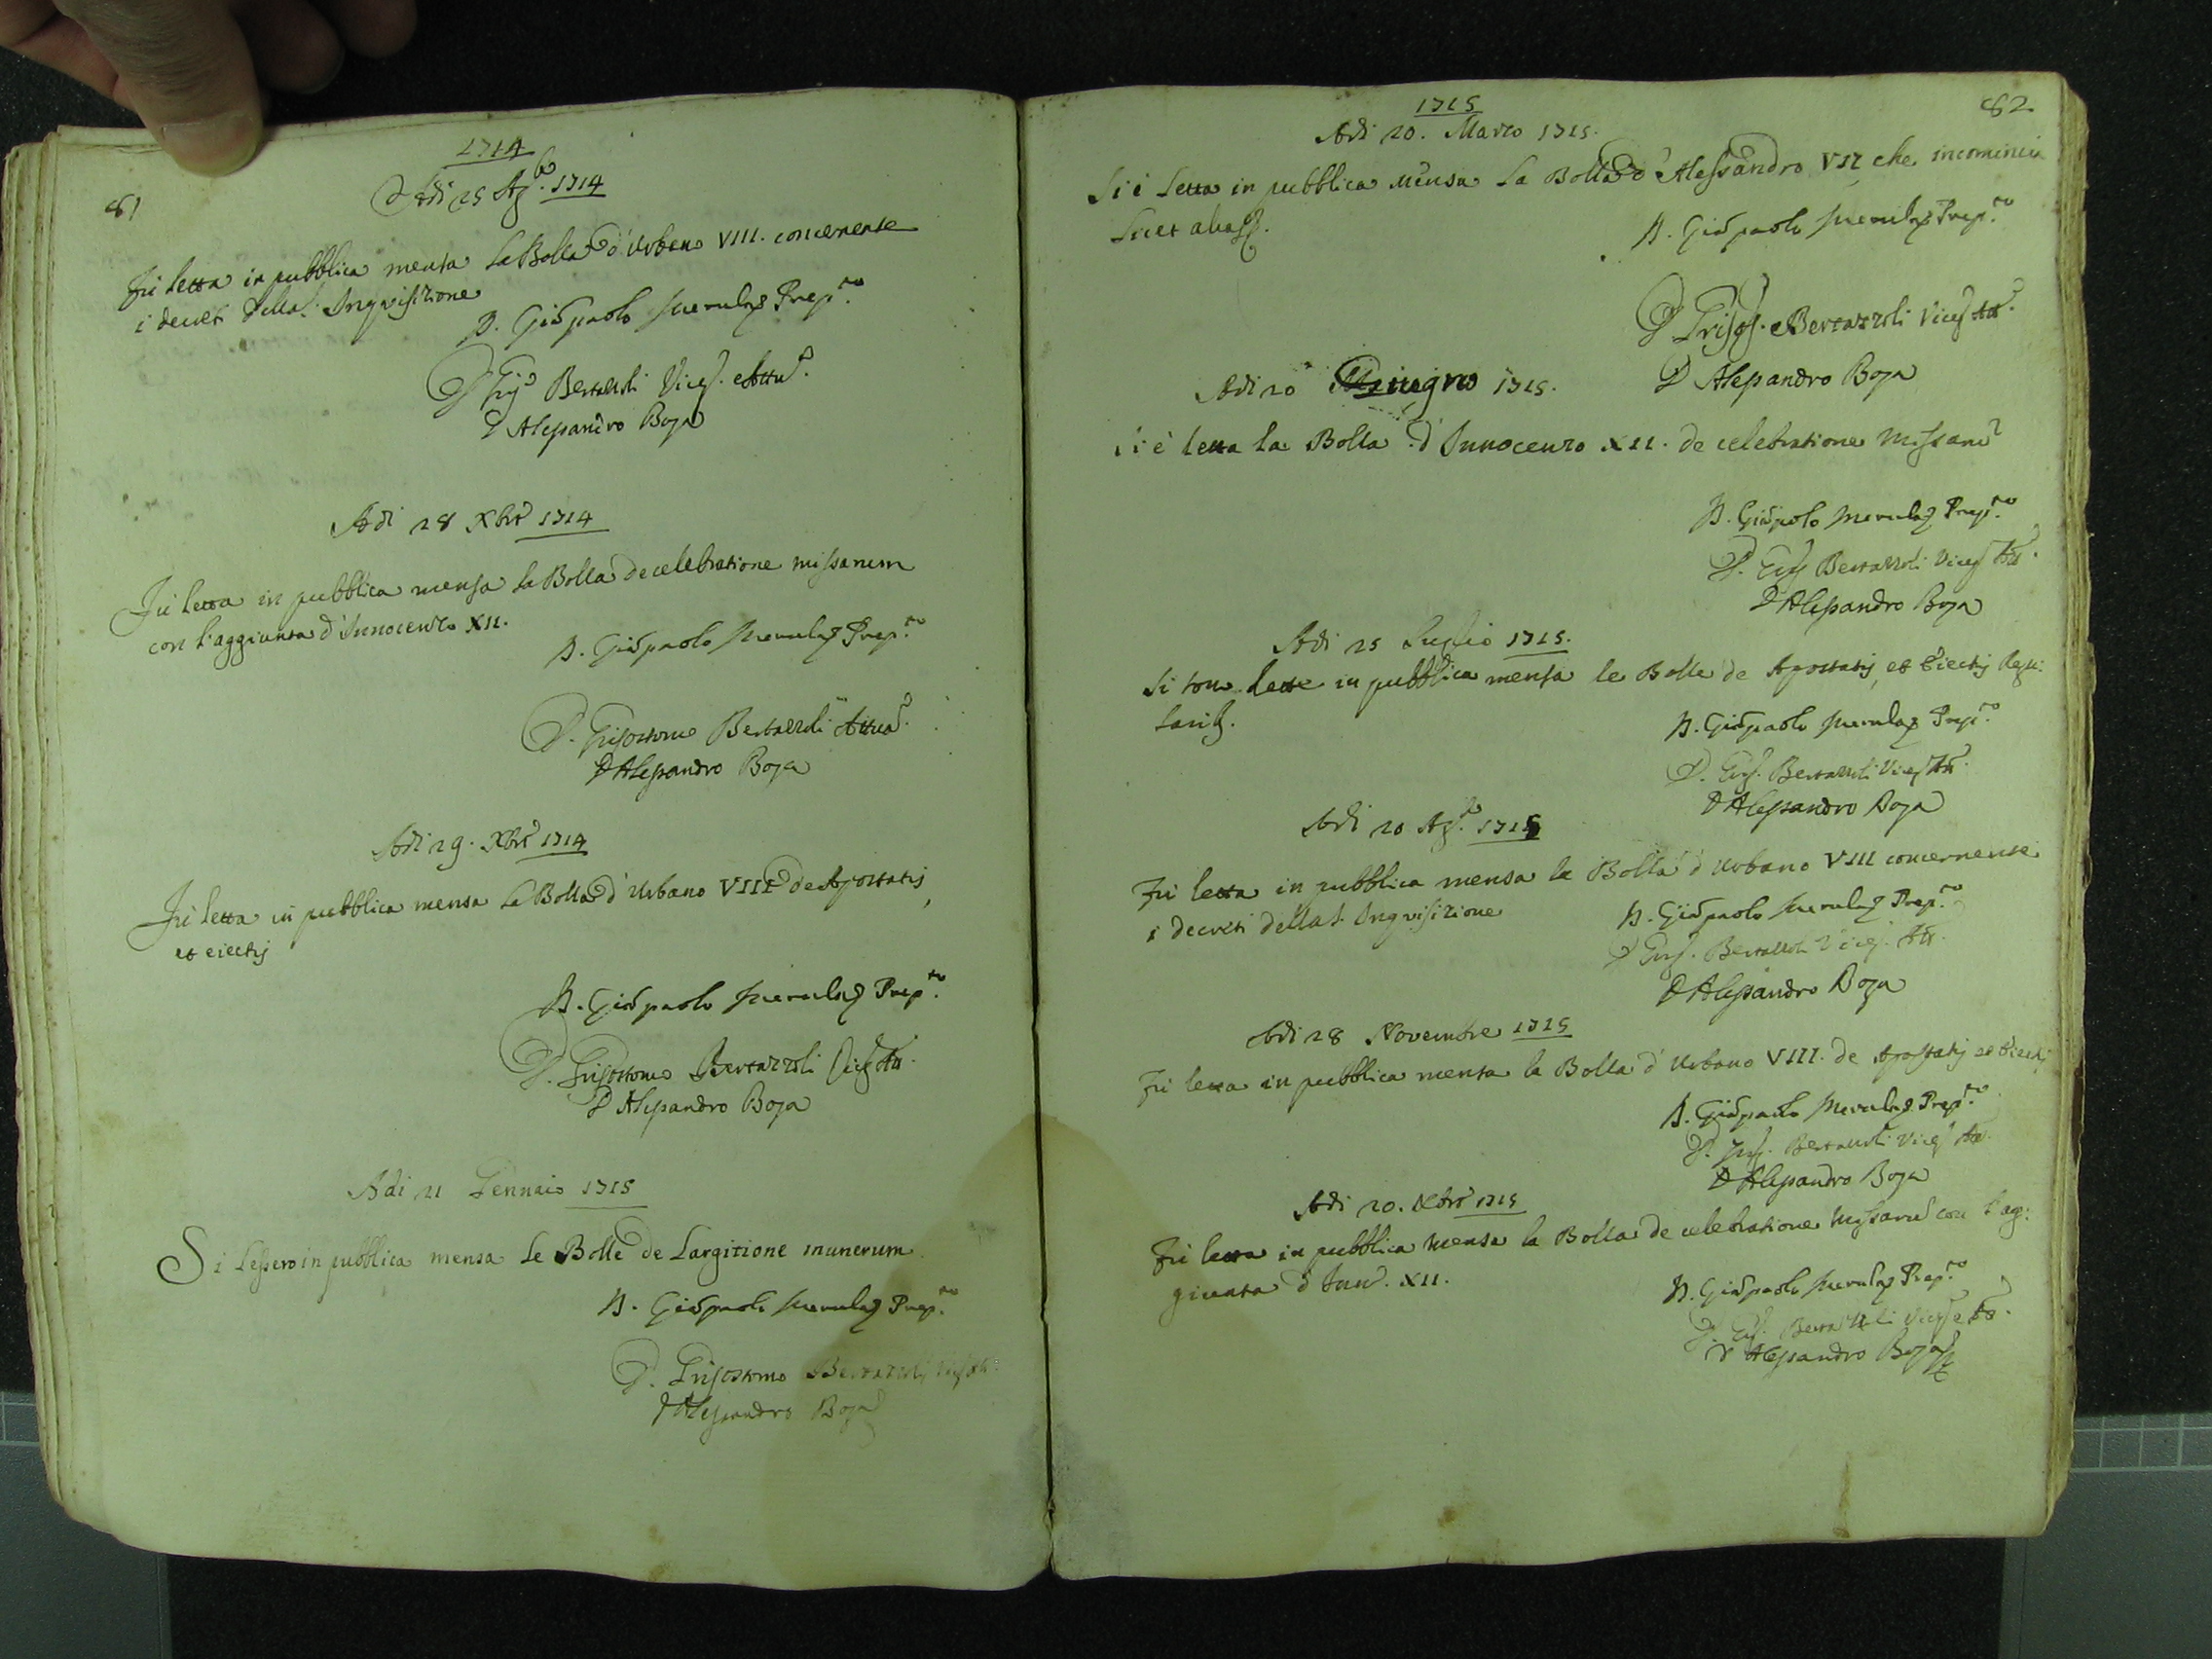 81
1714
Adi 25 Ag.to 1714
Fù letta in pubblica mensa la Bolla d'Urbano VIII. concernente
i decreti della S. Inquisizione
D. Giõpaolo Prep.to
D Gris. Bertazzoli Viceg. Attu.
D Alessandro Boga
Adi 28 Xbre 1714
Fù letta in pubblica mensa la Bolla de celebratione missarum
con l'aggiunta d'Innocenzo XII.
D. Giõpaolo Prep.to
D. Grisostomo Bertazzoli Attua.
D Alessandro Boga
Adi 29. Xbre 1714
Fù letta in pubblica mensa la Bolla d'Urbano VIII de Apostatis,
et eiectis
D. Giõpaolo Prep.to
D. Grisostomo Bertazzoli Viceg. Att.
D Alessandro Boga
Adi 21 Gennaio 1715
Si lessero in pubblica mensa le Bolle de Largitione munerum
D. Giõpaolo Prep.to
D. Grisostomo Bertazzoli
D Alessandro Boga
82
1715
Adi 20. Marzo 1715.
Si è letta in pubblica mensa la Bolla d'Alessandro VII che incomincia
Licet alias.
D. Giõpaolo Prep.to
D Grisos. Bertazzoli Viceg. Att.
D Alessandro Boga
Adi 20 Giugno 1715.
si è letta la Bolla d'Innocenzo XII. de celebratione Missarū
D. Giõpaolo Prep.to
D. Gris. Bertazzoli Viceg. Att.
D Alessandro Boga
Adi 25 Luglio 1715.
Si sono lette in pubblica mensa le Bolle de Apostatis, et Eiectis Regu:
larib.
D. Giõpaolo Prep.to
D. Gris. Bertazzoli Viceg. Att.
D Alessandro Boga
Adi 20 Ag.to 1715
Fù letta in pubblica mensa la Bolla d'Urbano VIII concernente
i decreti della S. Inquisizione
D. Giõpaolo Prep.to
D Gris. Bertazzoli Viceg. Att.
D Alessandro Boga
Adi 28 Novembre 1715
Fù letta in pubblica mensa la Bolla d'Urbano VIII. de Apostatis et Eiectis
D. Giõpaolo Prep.to
D. Gris. Bertazzoli Viceg. Att.
D Alessandro Boga
Adi 20. Xbre 1715
Fù letta in pubblica mensa la Bolla de celebratione Missarū con l'ag:
giunta d'Inno. XII.
D. Giõpaolo Prep.to
D. Gris. Bertazzoli Viceg. Att.
D Alessandro Boga